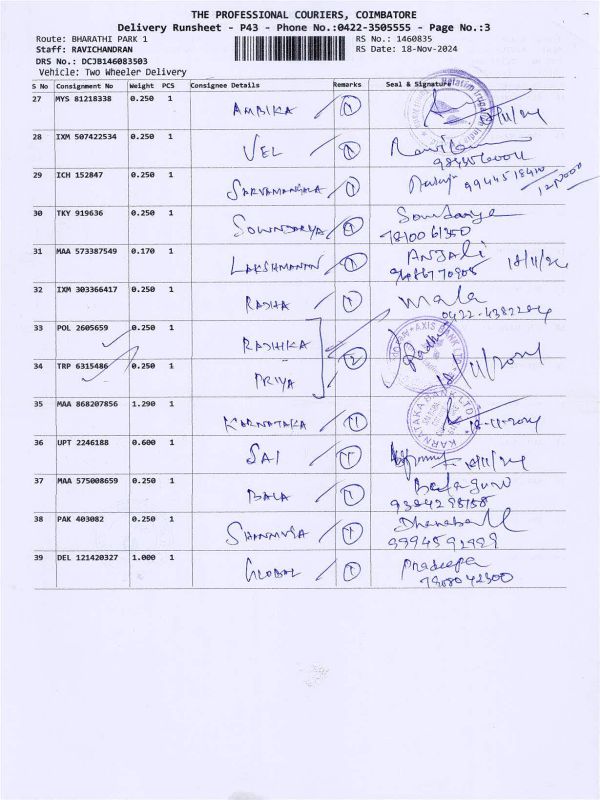 THE PROFESSIONAL COURIERS, COIMBATORE
Delivery Runsheet - P43 - Phone No.:0422-3505555 - Page No.:3
Route: BHARATHI PARK 1 RS No.: 1460835
Staff: RAVICHANDRAN RS Date: 18-Nov-2024
DRS No.: DCJB146083503
Vehicle: Two Wheeler Delivery
S No Consignment No Weight PCS Consignee Details Remarks Seal & Signature
27 MYS 81218338 0.250 1 AMBIKA 1 18/11/24
28 IXM 507422534 0.250 1 VEL 1
29 ICH 152847 0.250 1 SARVAMANGALA 1
30 TKY 919636 0.250 1 SOWNDARYA 1 Soundarya
7810061350
31 MAA 573387549 0.170 1 LAKSHMANAN 1 ANJALi 18/11/24
32 IXM 303366417 0.250 1 RADHA 1 mala
0422-4382204
33 POL 2605659 0.250 1 RADHIKA AXIS BANK
34 TRP 6315486 0.250 1 PRIYA 2 18/11/2024
35 MAA 868207856 1.290 1 KARNATAKA 1 KARNATAKA BANK LTD 18-11-2024
36 UPT 2246188 0.600 1 SAI 1 18/11/24
37 MAA 575008659 0.250 1 BALA 1
38 PAK 403082 0.250 1 SHANMUGA 1
9994592929
39 DEL 121420327 1.000 1 GLOBAL 1 Pradeepa